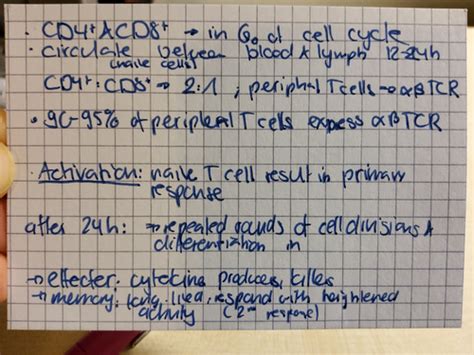 · CD4⁺ & CD8⁺ → in G₀ of cell cycle
· circulate between blood & lymph 12-24h
(naive cells)
CD4⁺: CD8⁺ → 2:1 , peripheral T cells → αβTCR
· 90-95% of peripheral T cells express αβTCR
Activation: naive T cell result in primary
response
after 24h: → repeated rounds of cell divisions &
differentiation in
→ effector: cytokine produces, killes
→ memory: long lived, respond with heightened
activity (2ⁿᵈ response)